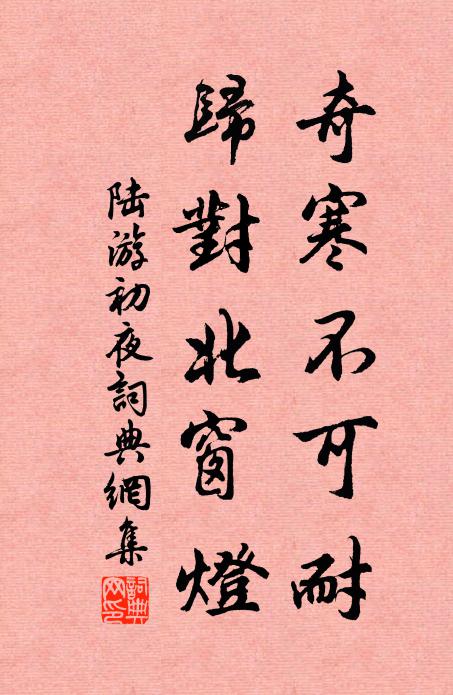 奇寒不可耐
歸對北窗燈
陸游初夜詞典網集
詞典
网印